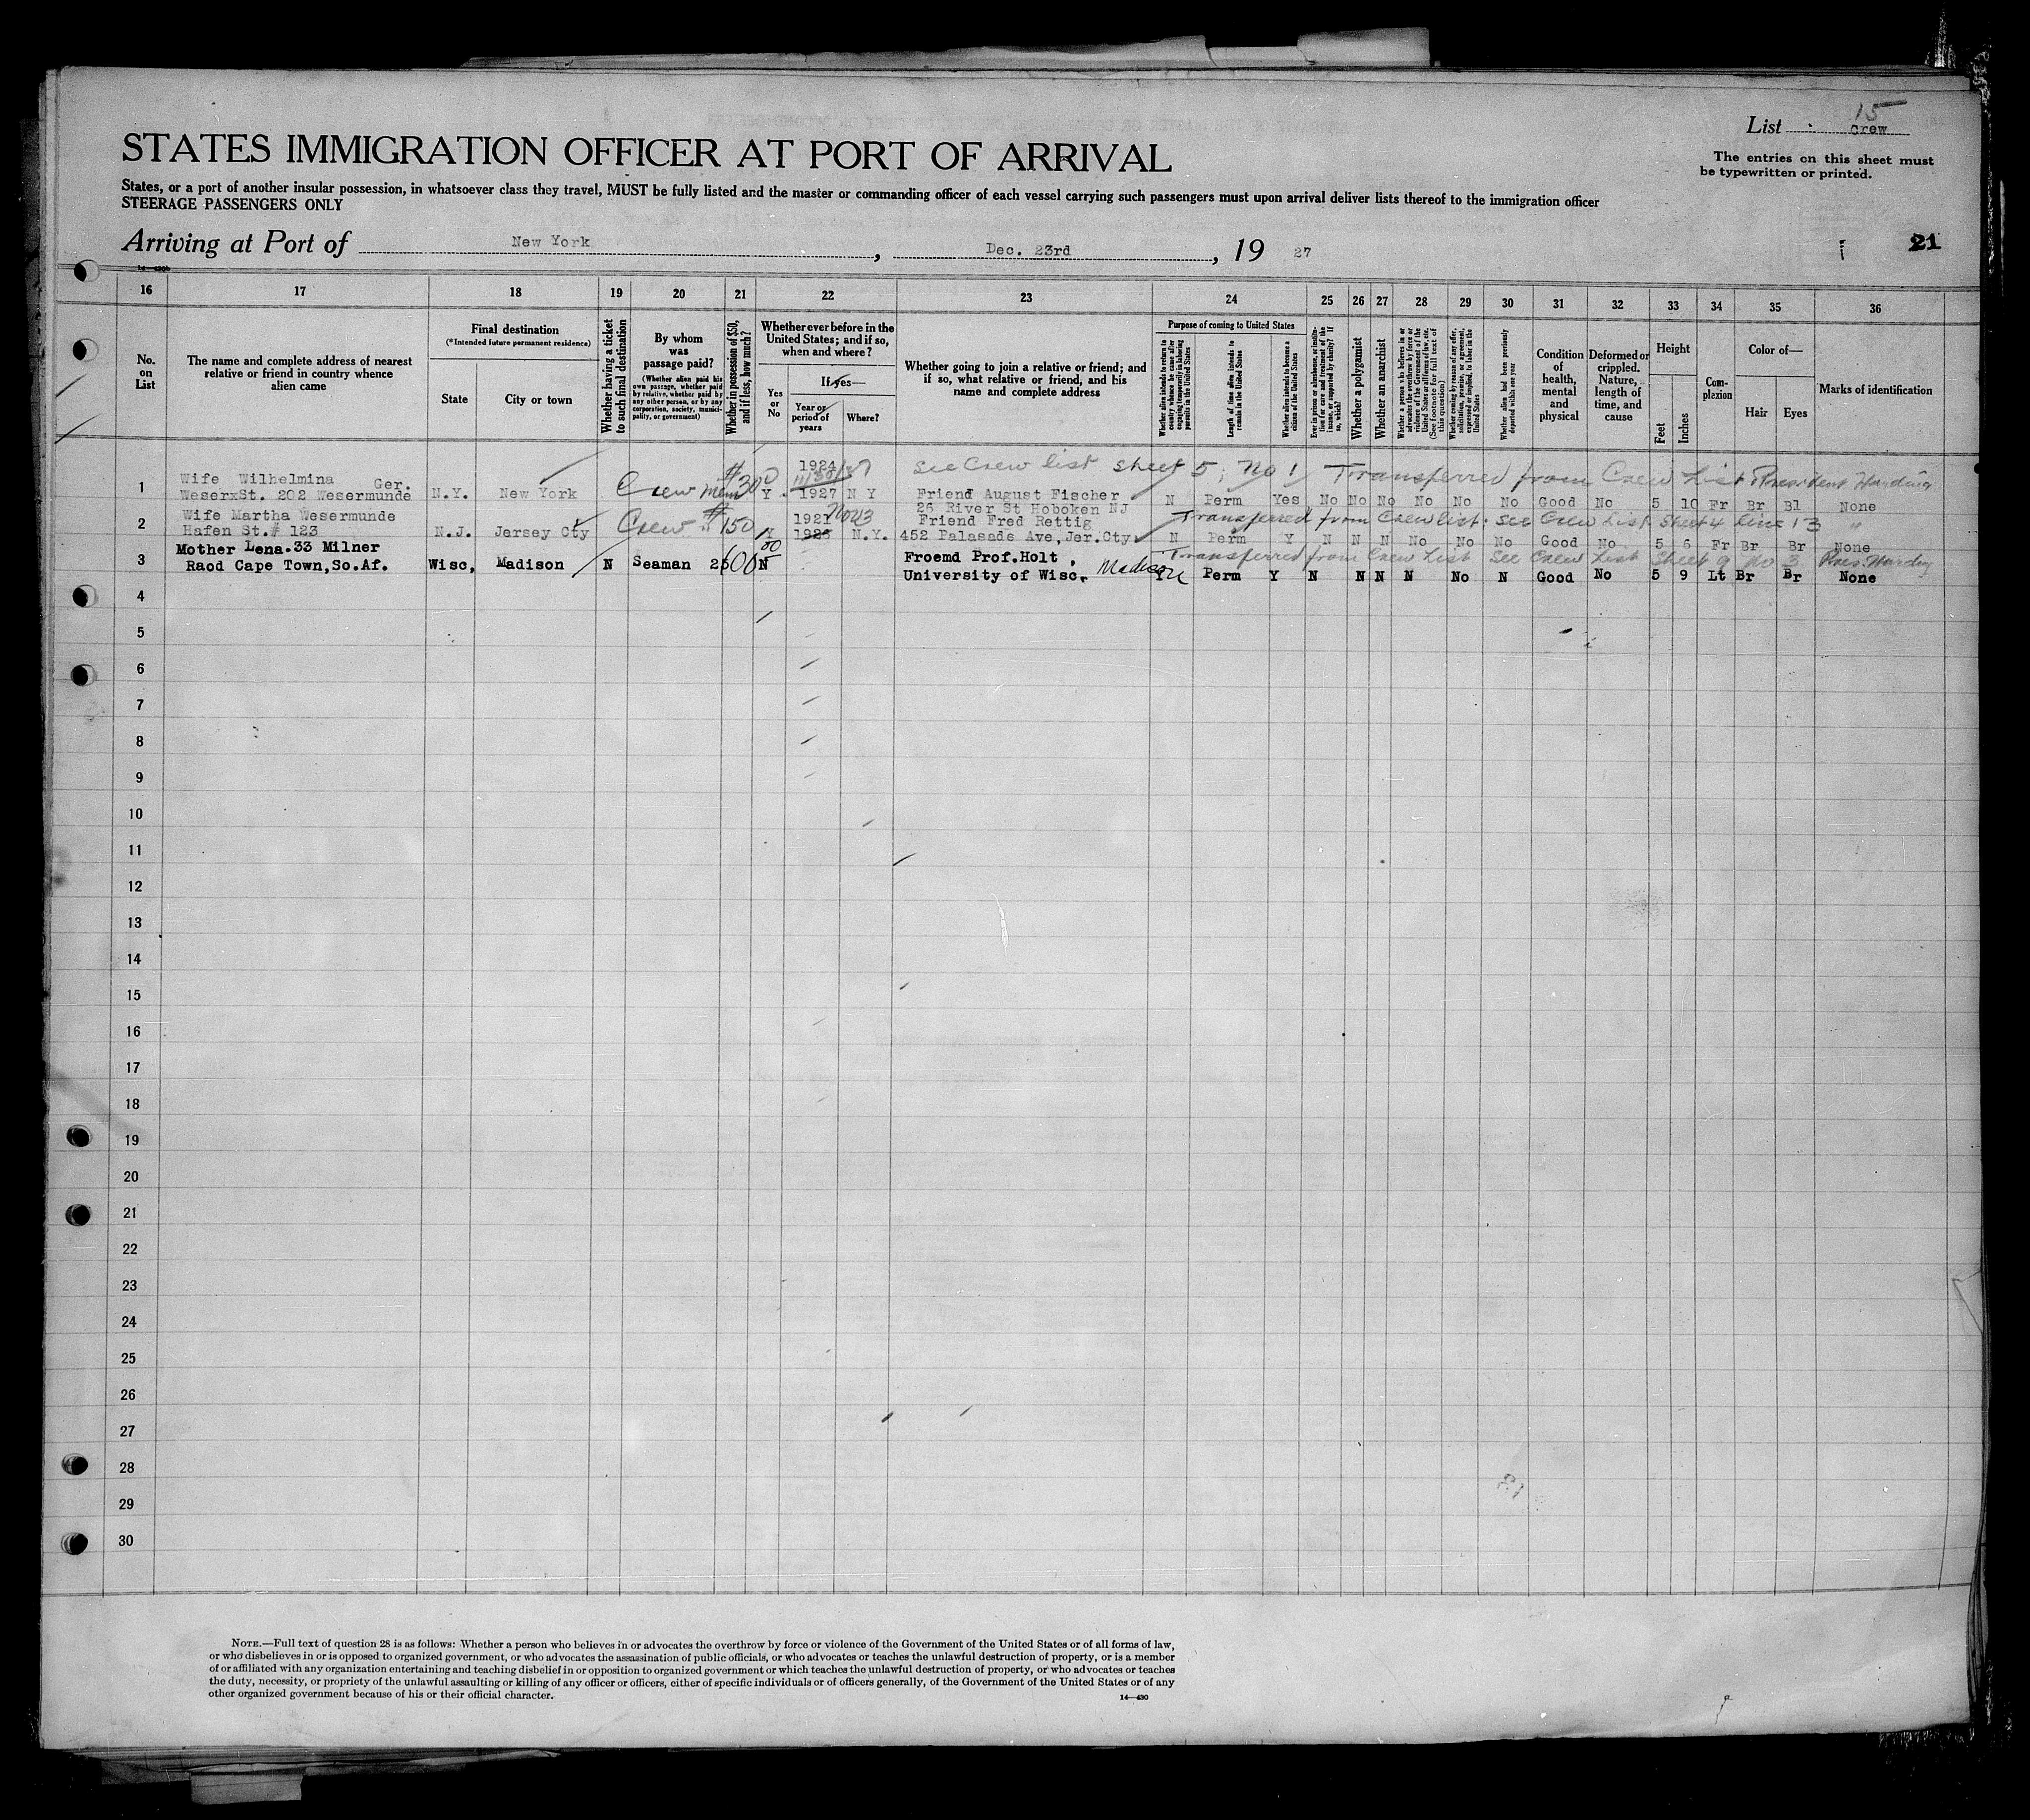 15
List crew
STATES IMMIGRATION OFFICER AT PORT OF ARRIVAL
The entries on this sheet must
be typewritten or printed.
States, or a port of another insular possession, in whatsoever class they travel, MUST be fully listed and the master or commanding officer of each vessel carrying such passengers must upon arrival deliver lists thereof to the immigration officer
STEERAGE PASSENGERS ONLY
Arriving at Port of New York, Dec. 23rd, 19 27
21
16 17 18 19 20 21 22 23 24 25 26 27 28 29 30 31 32 33 34 35 36
No. on List
The name and complete address of nearest relative or friend in country whence alien came
Final destination
(*Intended future permanent residence)
State
City or town
Whether having a ticket to such final destination
By whom was passage paid?
(Whether alien paid his own passage, whether paid by relative, whether paid by any other person, or by any corporation, society, municipality, or government)
Whether in possession of $50, and if less, how much?
Whether ever before in the United States; and if so, when and where?
Yes or No
If yes—
Year or period of years
Where?
Whether going to join a relative or friend; and if so, what relative or friend, and his name and complete address
Purpose of coming to United States
Whether alien intends to return to country whence he came after engaging temporarily in laboring pursuits in the United States
Length of time alien intends to remain in the United States
Whether alien intends to become a citizen of the United States
Ever in prison or almshouse, or institution for care and treatment of the insane, or supported by charity? If so, which?
Whether a polygamist
Whether an anarchist
Whether a person who believes in or advocates the overthrow by force or violence of the Government of the United States or all forms of law, etc. (See footnote for full text of this question)
Whether coming by reason of any offer, solicitation, promise, or agreement, expressed or implied, to labor in the United States
Whether alien had been previously deported within one year
Condition of health, mental and physical
Deformed or crippled. Nature, length of time, and cause
Height
Feet
Inches
Complexion
Color of—
Hair
Eyes
Marks of identification
1924 See Crew list sheet 5, No 1 Transferred from Crew List President Harding
Wife Wilhelmina Ger. $30 11/30/27
1 WeserxSt. 202 Wesermunde N.Y. New York Crew mem Y 1927 N Y Friend August Fischer N Perm Yes No No No No No No Good No 5 10 Fr Br Bl None
26 River St Hoboken NJ
Wife Martha Wesermunde 1921 Nov 3 Friend Fred Rettig Transferred from Crew list. see Crew List Sheet 4 line 13 "
2 Hafen St.# 123 N.J. Jersey Cty Crew " $150 1923 N.Y. 452 Palasade Ave,Jer.Cty N Perm Y N N N No No No Good No 5 6 Fr Br Br None
Mother Lena.33 Milner Froemd Prof.Holt , Transferred from Crew List See Crew List Sheet 9 No 3 Pres. Harding
3 Raod Cape Town,So.Af. Wisc, Madison N Seaman N University of Wisc, Madison Perm Y N N N N No N Good No 5 9 Lt Br Br None
4
5
6
7
8
9
10
11
12
13
14
15
16
17
18
19
20
21
22
23
24
25
26
27
28
29
30
NOTE.—Full text of question 28 is as follows: Whether a person who believes in or advocates the overthrow by force or violence of the Government of the United States or of all forms of law,
or who disbelieves in or is opposed to organized government, or who advocates the assassination of public officials, or who advocates or teaches the unlawful destruction of property, or is a member
of or affiliated with any organization entertaining and teaching disbelief in or opposition to organized government or which teaches the unlawful destruction of property, or who advocates or teaches
the duty, necessity, or propriety of the unlawful assaulting or killing of any officer or officers, either of specific individuals or of officers generally, of the Government of the United States or of any
other organized government because of his or their official character.
14—430